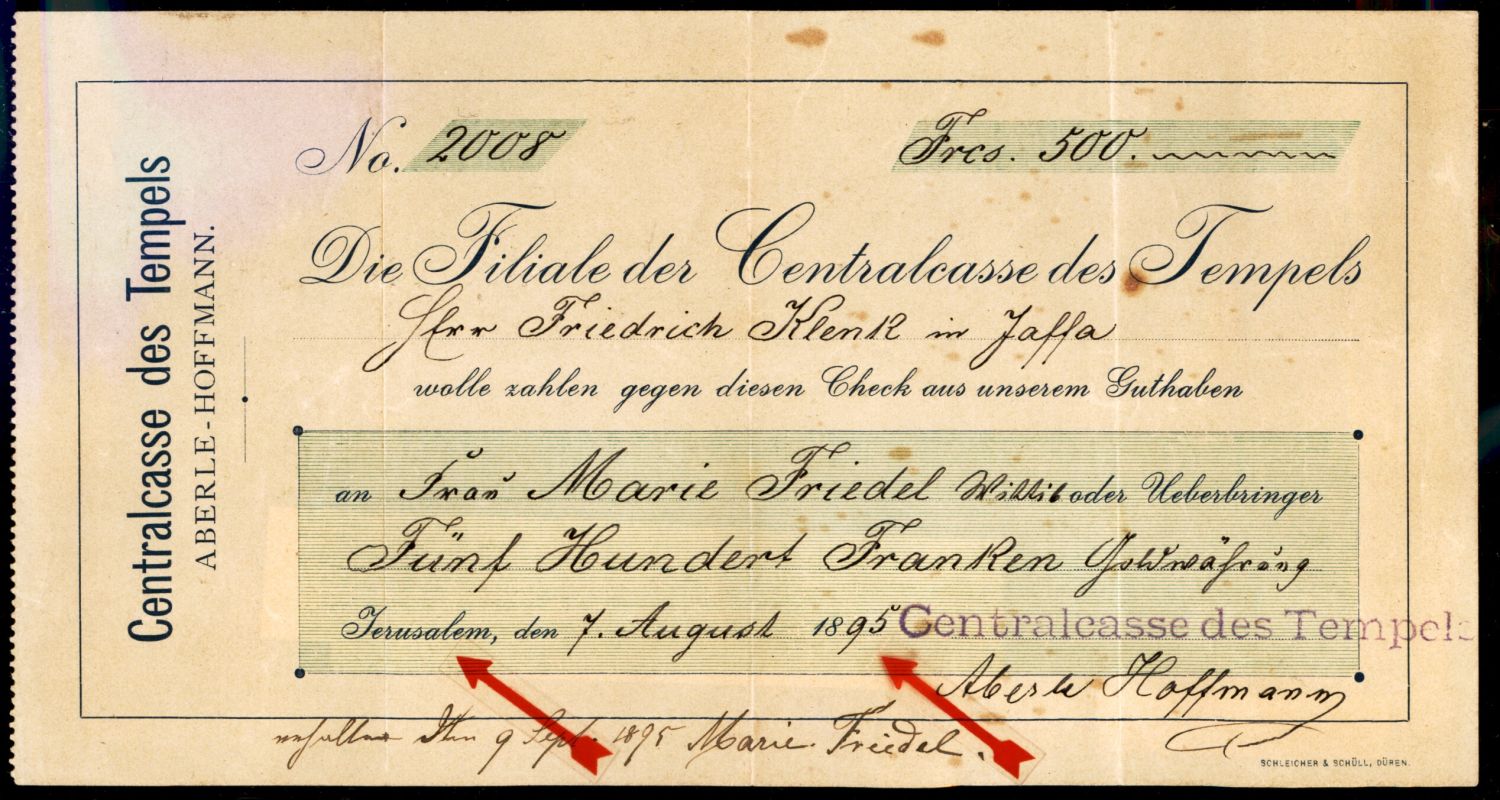 Centralcasse des Tempels
ABERLE-HOFFMANN.
No. 2008 Frcs. 500.
Die Filiale der Centralcasse des Tempels
Herr Friedrich Klenk in Jaffa
wolle zahlen gegen diesen Check aus unserem Guthaben
an Frau Marie Friedel oder Ueberbringer
Fünf Hundert Franken Goldwährung
Jerusalem, den 7. August 1895 Centralcasse des Tempels
Aberle Hoffmann
erhalten 9 Sept. 1895 Marie Friedel.
SCHLEICHER & SCHÜLL, DÜREN.